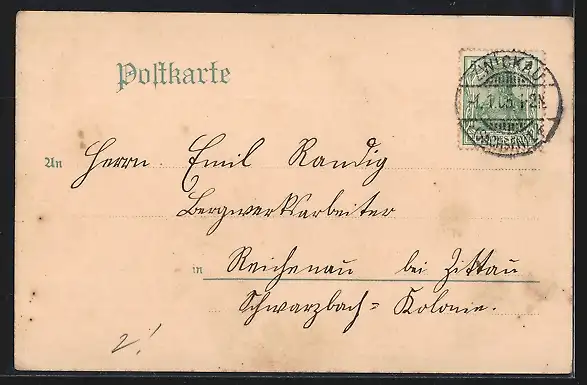 Postkarte
ZWICKAU
An Herrn Emil Randig
Bergwerksarbeiter
in Reichenau bei Zittau
Schwarzbach = Kolonie.
2!